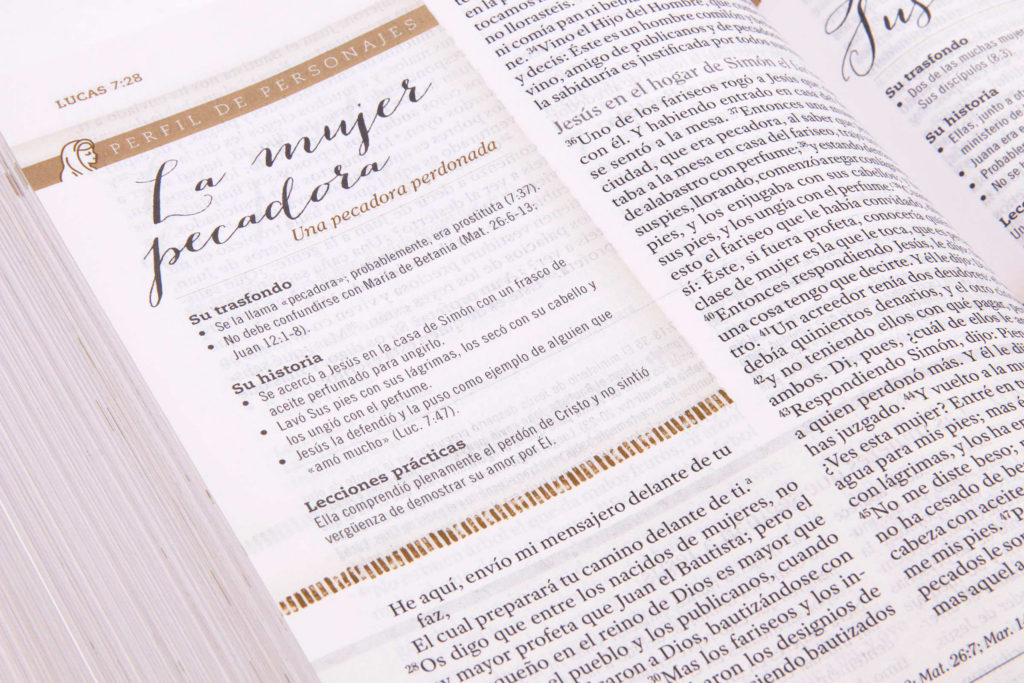 LUCAS 7:28
PERFIL DE PERSONAJES
La mujer
pecadora
Una pecadora perdonada
Su trasfondo
• Se la llama «pecadora»; probablemente, era prostituta (7:37).
• No debe confundirse con María de Betania (Mat. 26:6-13;
Juan 12:1-8).
Su historia
• Se acercó a Jesús en la casa de Simón con un frasco de
aceite perfumado para ungirlo.
• Lavó Sus pies con sus lágrimas, los secó con su cabello y
los ungió con el perfume.
• Jesús la defendió y la puso como ejemplo de alguien que
«amó mucho» (Luc. 7:47).
Lecciones prácticas
Ella comprendió plenamente el perdón de Cristo y no sintió
vergüenza de demostrar su amor por Él.
He aquí, envío mi mensajero delante de tu
faz,
El cual preparará tu camino delante de ti.ª
28Os digo que entre los nacidos de mujeres, no
mayor profeta que Juan el Bautista; pero el
en el reino de Dios es mayor que
el pueblo y los publicanos, cuando
a Dios, bautizándose con
30Mas los fariseos y los in-
los designios de
bautizados
tocamos
no llorasteis.
ni comía pan ni
34Vino el Hijo del Hombre,
y decís: Éste es un hombre comilón
vino, amigo de publicanos y de
la sabiduría es justificada por todos
Jesús en el hogar de Simón el
36Uno de los fariseos rogó a Jesús
con él. Y habiendo entrado en casa
se sentó a la mesa. 37Entonces una
ciudad, que era pecadora, al saber
taba a la mesa en casa del fariseo,
de alabastro con perfume; 38y estando
sus pies, llorando, comenzó a regar con
pies, y los enjugaba con sus cabellos
sus pies, y los ungía con el perfume.
esto el fariseo que le había convidado
sí: Éste, si fuera profeta, conocería
clase de mujer es la que le toca, que
40Entonces respondiendo Jesús, le
una cosa tengo que decirte. Y él le dijo
tro. 41Un acreedor tenía dos deudores
debía quinientos denarios, y el otro
42y no teniendo ellos con qué pagar,
ambos. Di, pues, ¿cuál de ellos le
43Respondiendo Simón, dijo:
a quien perdonó más. Y él le
has juzgado. 44Y vuelto a la
¿Ves esta mujer? Entré en
agua para mis pies; mas
con lágrimas, y los ha
45No me diste beso;
no ha cesado de
cabeza con aceite
me mis pies. 47P
pecados le
mas aquel a
Mat. 26:7; Mar.
Su trasfondo
• Dos de las muchas
Sus discípulos (8:3).
Su historia
• Ellas, junto a
ministerio de
• Juana era
•
• No se